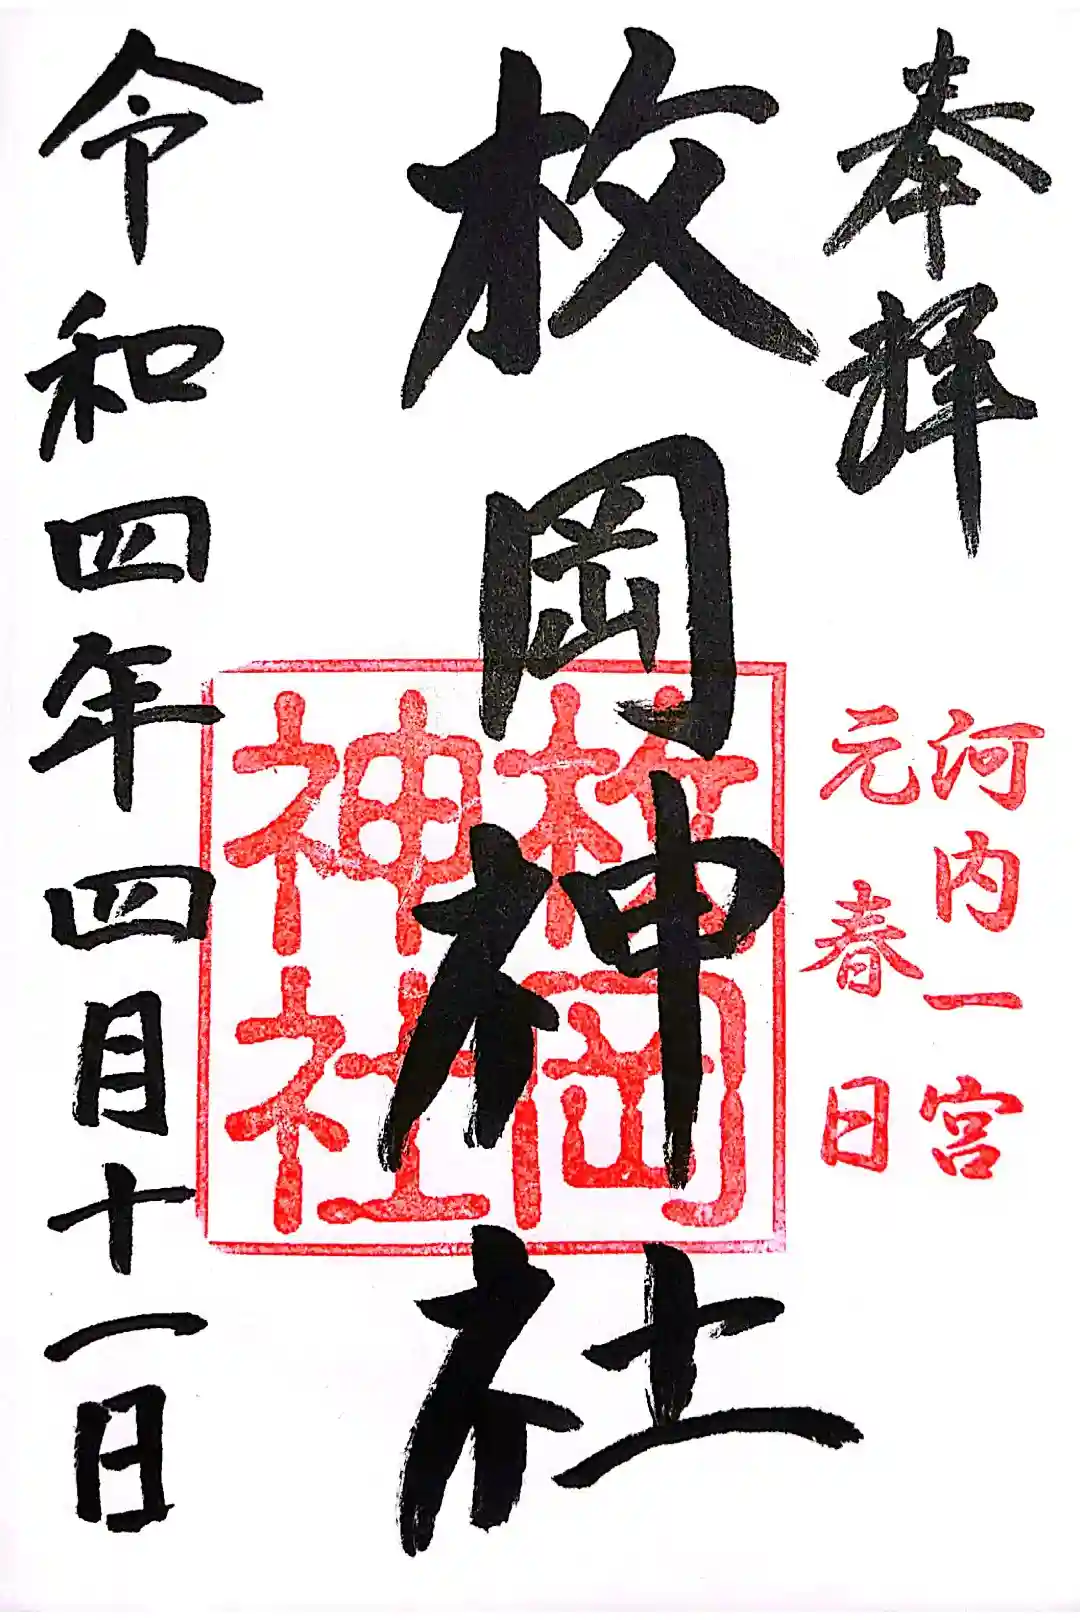 奉拝
河内一宮
元春日
枚岡神社
枚岡
神社
令和四年四月十一日